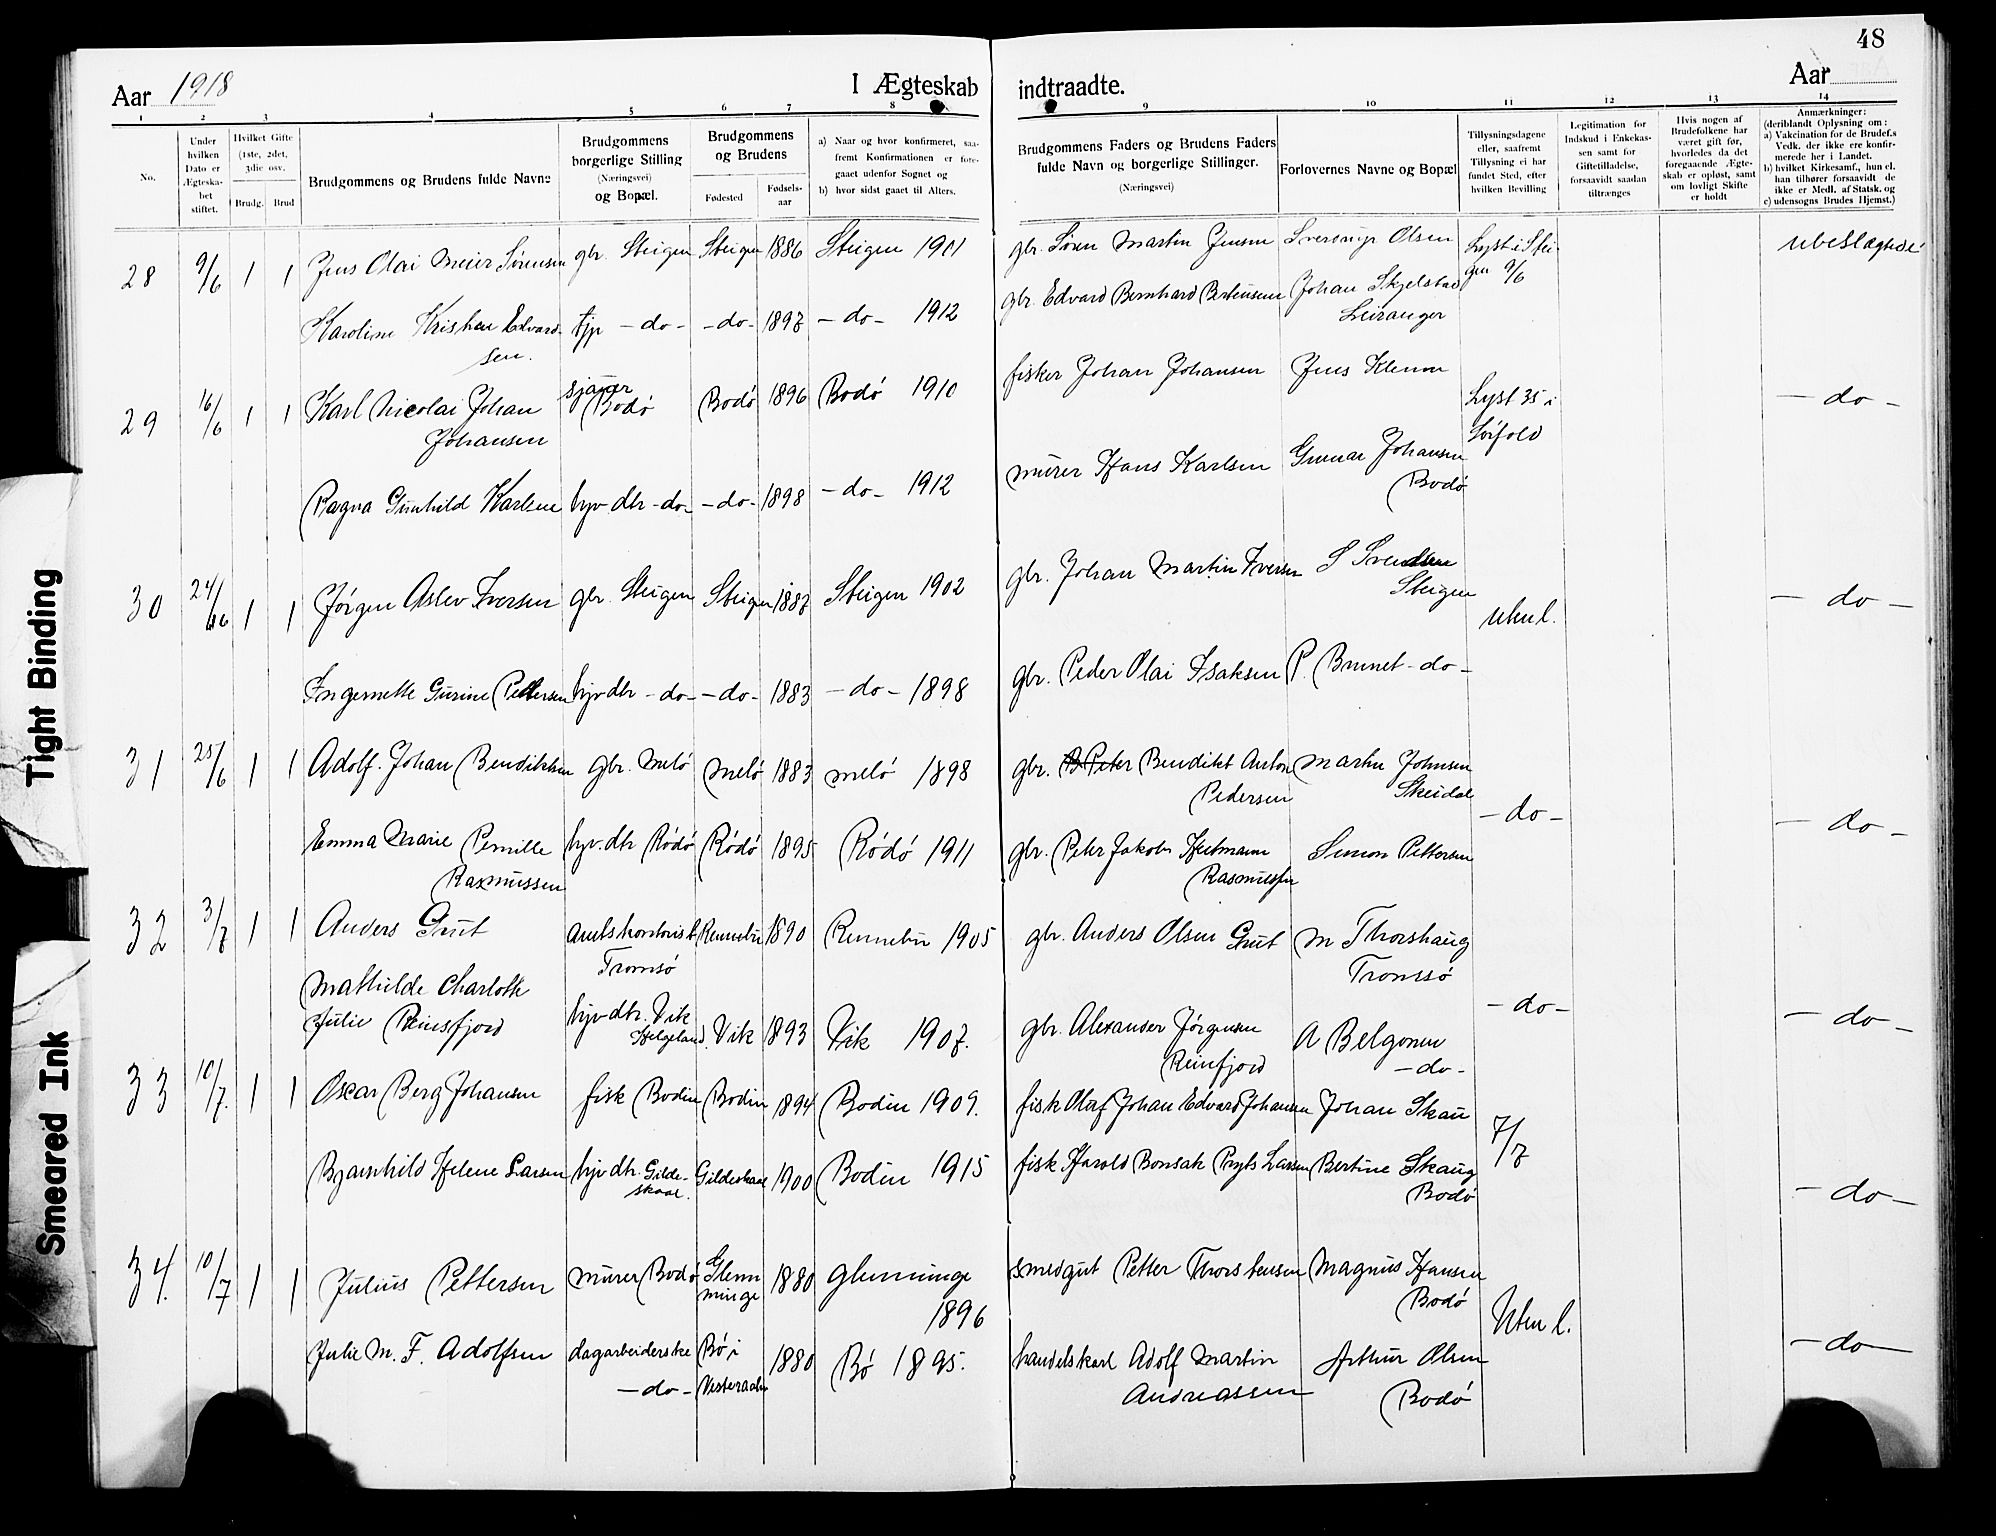 48
Aar 1918
I Ægteskab indtraadte.
Aar
1 2 3 4 5 6 7 8 9 10 11 12 13 14
No.
Under hvilken Dato er Ægteska- bet stiftet.
Hvilket Gifte (1ste, 2det, 3die osv.
Brudg. Brud
Brudgommens og Brudens fulde Navne
Brudgommens borgerlige Stilling (Næringsvei) og Bopæl.
Brudgommens og Brudens
Fødested
Fødsels- aar
a) Naar og hvor konfirmeret, saa- fremt Konfirmationen er fore- gaaet udenfor Sognet og
b) hvor sidst gaaet til Alters.
Brudgommens Faders og Brudens Faders fulde Navn og borgerlige Stillinger.
(Næringsvei)
Forlovernes Navne og Bopæl
Tillysningsdagene eller, saafremt Tillysning ei har fundet Sted, efter hvilken Bevilling
Legitimation for Indskud i Enkekas- sen samt for Giftetilladelse, forsaavidt saadan tiltrænges
Hvis nogen af Brudefolkene har været gift før, hvorledes da det foregaaende Ægte- skab er opløst, samt om lovligt Skifte er holdt
Anmærkninger:
(deriblandt Oplysning om:
a) Vakcination for de Brudef.s Vedk. der ikke ere konfir- merede her i Landet.
b) hvilket Kirkesamf., hun el. han tilhører forsaavidt de ikke er Medl. af Statsk. og
c) udensogns Brudes Hjemst.)
28 9/6 1 1 Jens Olai Meier Sørensen gbr. Steigen Steigen 1886 Steigen 1901 gbr. Søren Martin Jensen Sverdrup Olsen Lyst i Stei- gen 9/6 ubeslægtede
Karoline Kristine Edvard- sen. tjp -do- -do- 1897 -do- 1912 gbr. Edvard Bernhard Bertensen Johan Skjelstad Leiranger
29 16/6 1 1 Karl Nicolai Johan Johansen sjauer Bodø Bodø 1896 Bodø 1910 fisker Johan Johansen Jens Klemm Lyst 35 i Sørfold -do-
Ragna Gunhild Karlsen hjv. dtr -do- -do- 1898 -do- 1912 murer Hans Karlsen Gunnar Johansen Bodø
30 24/6 1 1 Jørgen Aslev Iversen gbr. Steigen Steigen 1887 Steigen 1902 gbr. Johan Martin Iversen S Svendsen Steigen uten l. -do-
Ingernette Gurine Pettersen hjv dtr -do- -do- 1883 -do- 1898 gbr. Peder Olai Isaksen P. Brunet -do-
31 25/6 1 1 Adolf. Johan Bendiktsen gbr. Melø Melø 1883 Melø 1898 gbr. Peter Bendikt Anton Pedersen Martin Johnsen Skeidal -do- -do-
Emma Marie Pernille Rasmussen hjv. dtr Rødø Rødø 1895 Rødø 1911 gbr. Peter Jakob Heitmann Rasmussen Simon Pettersen
32 3/7 1 1 Anders Grut amtskontorist Tromsø Rennebu 1890 Rennebu 1905 gbr. Anders Olsen Grut M Thorshaug Tromsø
Mathilde Charlotte Julie Reinsfjord hjv dtr. Vik Helgeland. Vik 1893 Vik 1907. gbr. Alexander Jørgensen Reinfjord A Belgonen -do- -do- -do-
33 10/7. 1 1 Oscar Berg Johansen fisk Bodin Bodin 1894 Bodin 1909. fisk Olaf Johan Edvard Johansen Johan Skau 7/7
Bjarnhild Helene Larsen hjv dtr. Gilde- skaal. Gildeskaal 1900 Bodin 1915 fisk Harold Bonsak Pryts Larsen Bertine Skaug Bodø -do-
34. 10/7 1 1 Julius Pettersen murer Bodø Glem minge 1880 Glemminge 1896 smedgut Petter Thorstensen Magnus Hansen Bodø Uten l.
Julie M. F. Adolfsen dagarbeiderske -do- Bø i Vesteraalen 1880 Bø 1895. handelskarl Adolf Martin Andreassen Arthur Olsen Bodø -do-
Tight Binding
Smeared Ink